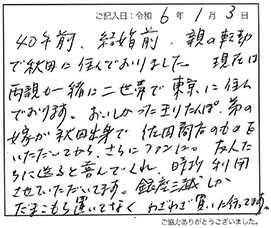 ご記入日:令和 6 年 1 月 3 日
40年前、結婚前、親の転勤
で秋田に住んでおりました。現在は
両親と一緒に二世帯で東京に住ん
でおります。おいしかった玉りたんぽ、弟の
嫁が秋田出身で佐田商店のもの
いただいてから、さらにファンに。友人た
ちに送ると喜んでくれ、時折利用
させていただいてます。銀座三越しか
だまこもち置いてなく わざわざ買いに行ってます。
ご協力ありがとうございました。